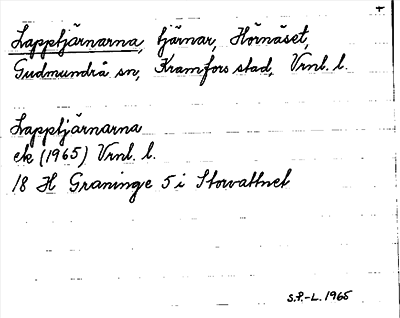 Lapptjärnarna, tjärnar, Hörnäset,
Gudmundrå sn, Kramfors stad, Vrnl. l.
Lapptjärnarna
ek (1965) Vrnl. l.
18 H Graninge 5 i Storvattnet
S.P.-L. 1965